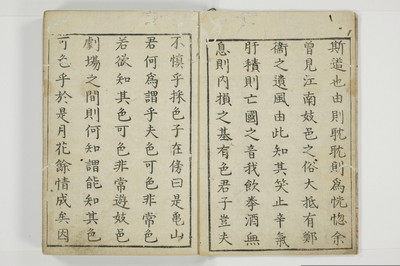 斯遣也由則耽耽則為恍惚余
曽見江南妓邑之俗大抵有鄭
衛之遺風由此知其笑止辛氣
肝積則亡國之音我飲拳酒無
息則内損之基有色君子豈夫
不慎乎採色子在傍曰是亀山
君何為謂乎夫色可色非常色
若欲知其色可色非常遊妓邑
劇場之間則何知謂能知其色
可色乎於是月花餘情成矣因